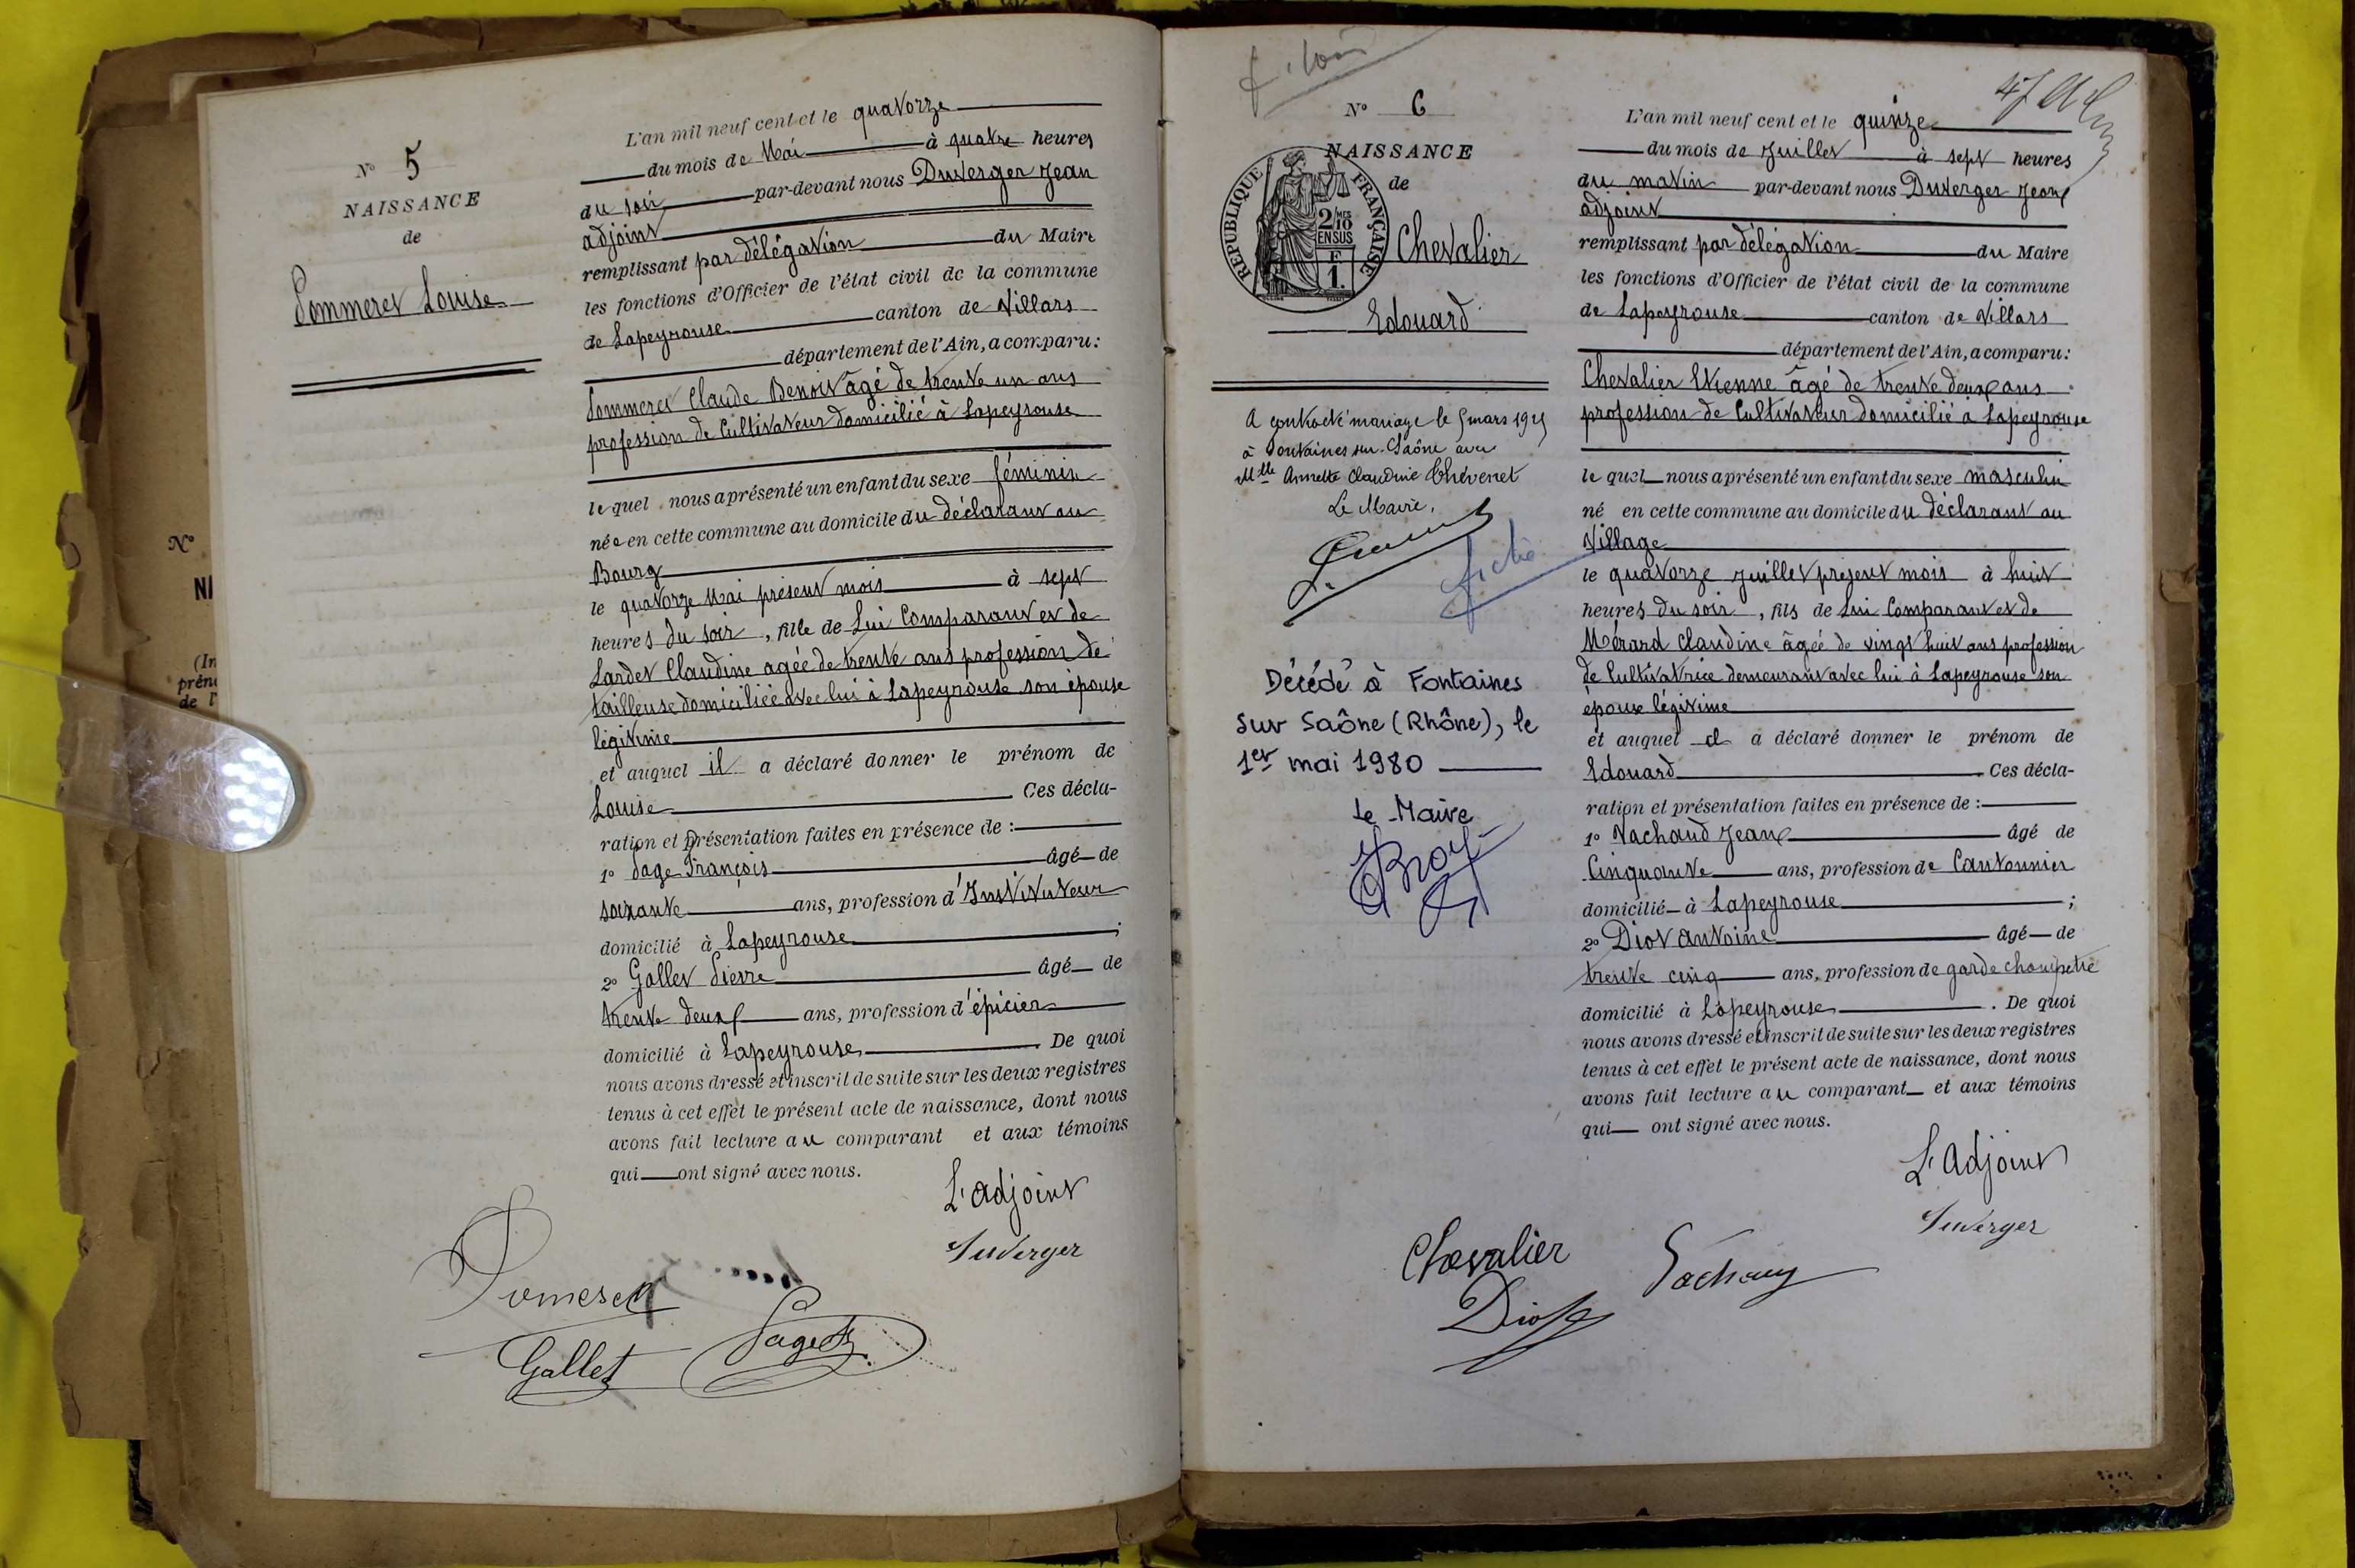 N°
NI
(In
prén
de l'
N° 5
NAISSANCE
de
Pommeret Louise
L'an mil neuf cent et le quatorze
du mois de Mai à quatre heures
du soir par-devant nous Duverger Jean
adjoint
remplissant par délégation du Maire
les fonctions d'Officier de l'état civil de la commune
de Lapeyrouse canton de Villars
département de l'Ain, a comparu :
Pommeret Claude Benoit âgé de trente un ans
profession de Cultivateur domicilié à Lapeyrouse
le quel nous a présenté un enfant du sexe féminin
née en cette commune au domicile du déclarant au
Bourg
le quatorze Mai présent mois à sept
heures du soir, fille de Lui Comparant et de
Lardet Claudine agée de trente ans profession de
tailleuse domiciliée avec lui à Lapeyrouse son épouse
légitime
et auquel il a déclaré donner le prénom de
Louise Ces décla-
ration et présentation faites en présence de :
1° Page François âgé de
soixante ans, profession d'Instituteur
domicilié à Lapeyrouse ;
2° Gallet Pierre âgé de
trente deux ans, profession d'épicier
domicilié à Lapeyrouse. De quoi
nous avons dressé et inscrit de suite sur les deux registres
tenus à cet effet le présent acte de naissance, dont nous
avons fait lecture au comparant et aux témoins
qui ont signé avec nous.
L'adjoint
Duverger
Pomeret
Gallet
N° 6
NAISSANCE
de
REPUBLIQUE FRANÇAISE
2/10 MES
EN SUS
F
1.
Chevalier
Edouard
A contracté mariage le 5 mars 1925
à Fontaines sur-Saône avec
Mlle Annette Claudine Thévenet
Le Maire,
fiche
Décédé à Fontaines
sur Saône (Rhône), le
1er mai 1980
Le Maire
L'an mil neuf cent et le quinze
du mois de Juillet à sept heures
du matin par-devant nous Duverger Jean
adjoint
remplissant par délégation du Maire
les fonctions d'Officier de l'état civil de la commune
de Lapeyrouse canton de Villars
département de l'Ain, a comparu :
Chevalier Etienne âgé de trente deux ans
profession de Cultivateur domicilié à Lapeyrouse
le quel nous a présenté un enfant du sexe masculin
né en cette commune au domicile du déclarant au
Village
le quatorze Juillet présent mois à huit
heures du soir, fils de Lui Comparant et de
Mérard Claudine âgée de vingt huit ans profession
de Cultivatrice demeurant avec lui à Lapeyrouse son
épouse légitime
et auquel il a déclaré donner le prénom de
Edouard. Ces décla-
ration et présentation faites en présence de :
1° Vachaud Jean âgé de
Cinquante ans, profession de Cantonnier
domicilié à Lapeyrouse ;
2° Diot Antoine âgé de
trente cinq ans, profession de garde champetre
domicilié à Lapeyrouse. De quoi
nous avons dressé et inscrit de suite sur les deux registres
tenus à cet effet le présent acte de naissance, dont nous
avons fait lecture au comparant et aux témoins
qui ont signé avec nous.
L'Adjoint
Duverger
Chevalier
Diot